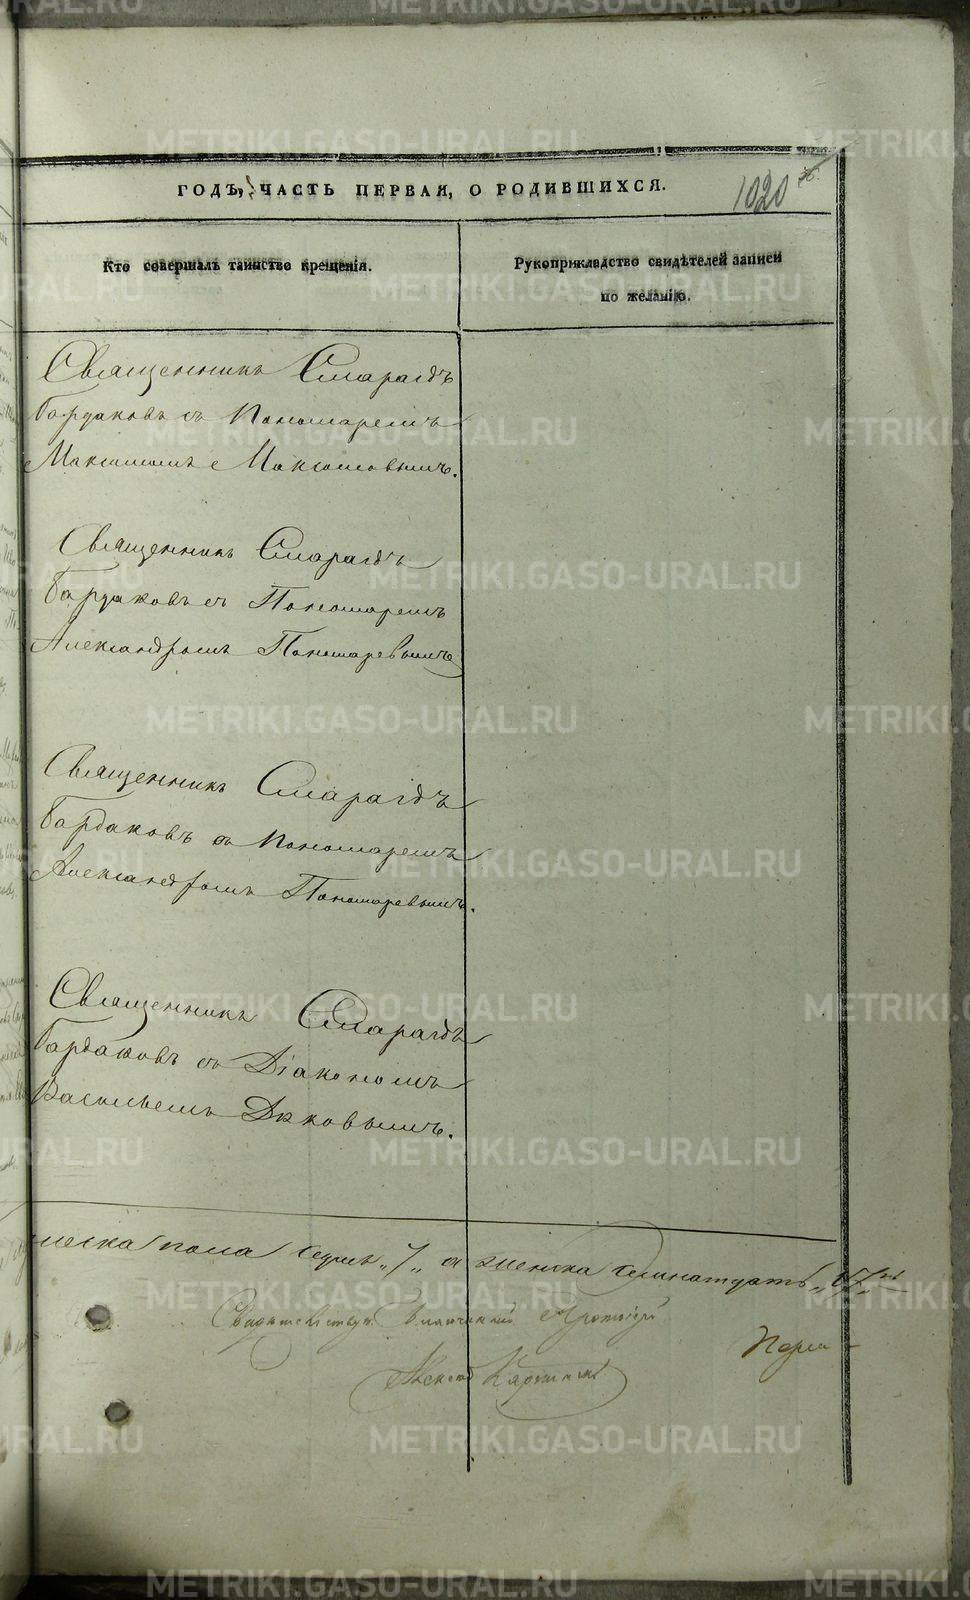 ГОДЪ, ЧАСТЬ ПЕРВАЯ, О РОДИВШИХСЯ.
1020
Кто совершалъ таинство крещенія.
Рукоприкладство свидѣтелей записи
по желанію.
Священникъ Смарагдъ
Бардаковъ съ Пономаремъ
Максимомъ Максимовымъ.
Священникъ Смарагдъ
Бардаковъ съ Пономаремъ
Александромъ Пономаревымъ
Священникъ Смарагдъ
Бардаковъ съ Пономаремъ
Александромъ Пономаревымъ.
Священникъ Смарагдъ
Бардаковъ съ Діакономъ
Васильемъ
пола седмь „7„ а женска
Благочинный Протоіерей
METRIKI.GASO-URAL.RU